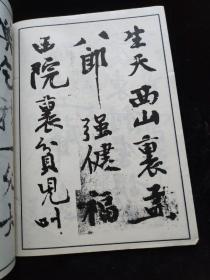 生天西山裏盖
八郎强健福
西院裏貧兒叫